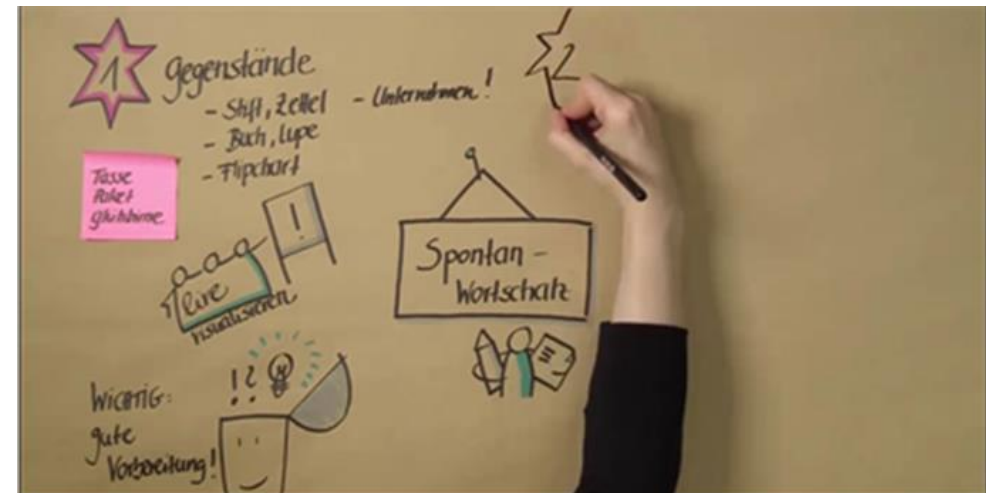 1
Gegenstände
- Stift, Zettel
- Unternehmen!
- Buch, Lupe
- Flipchart
Tasse
Paket
Glühbirne
2
!
live
visualisieren
Spontan-
Wortschatz
!?
WICHTIG:
gute
Vorbereitung!